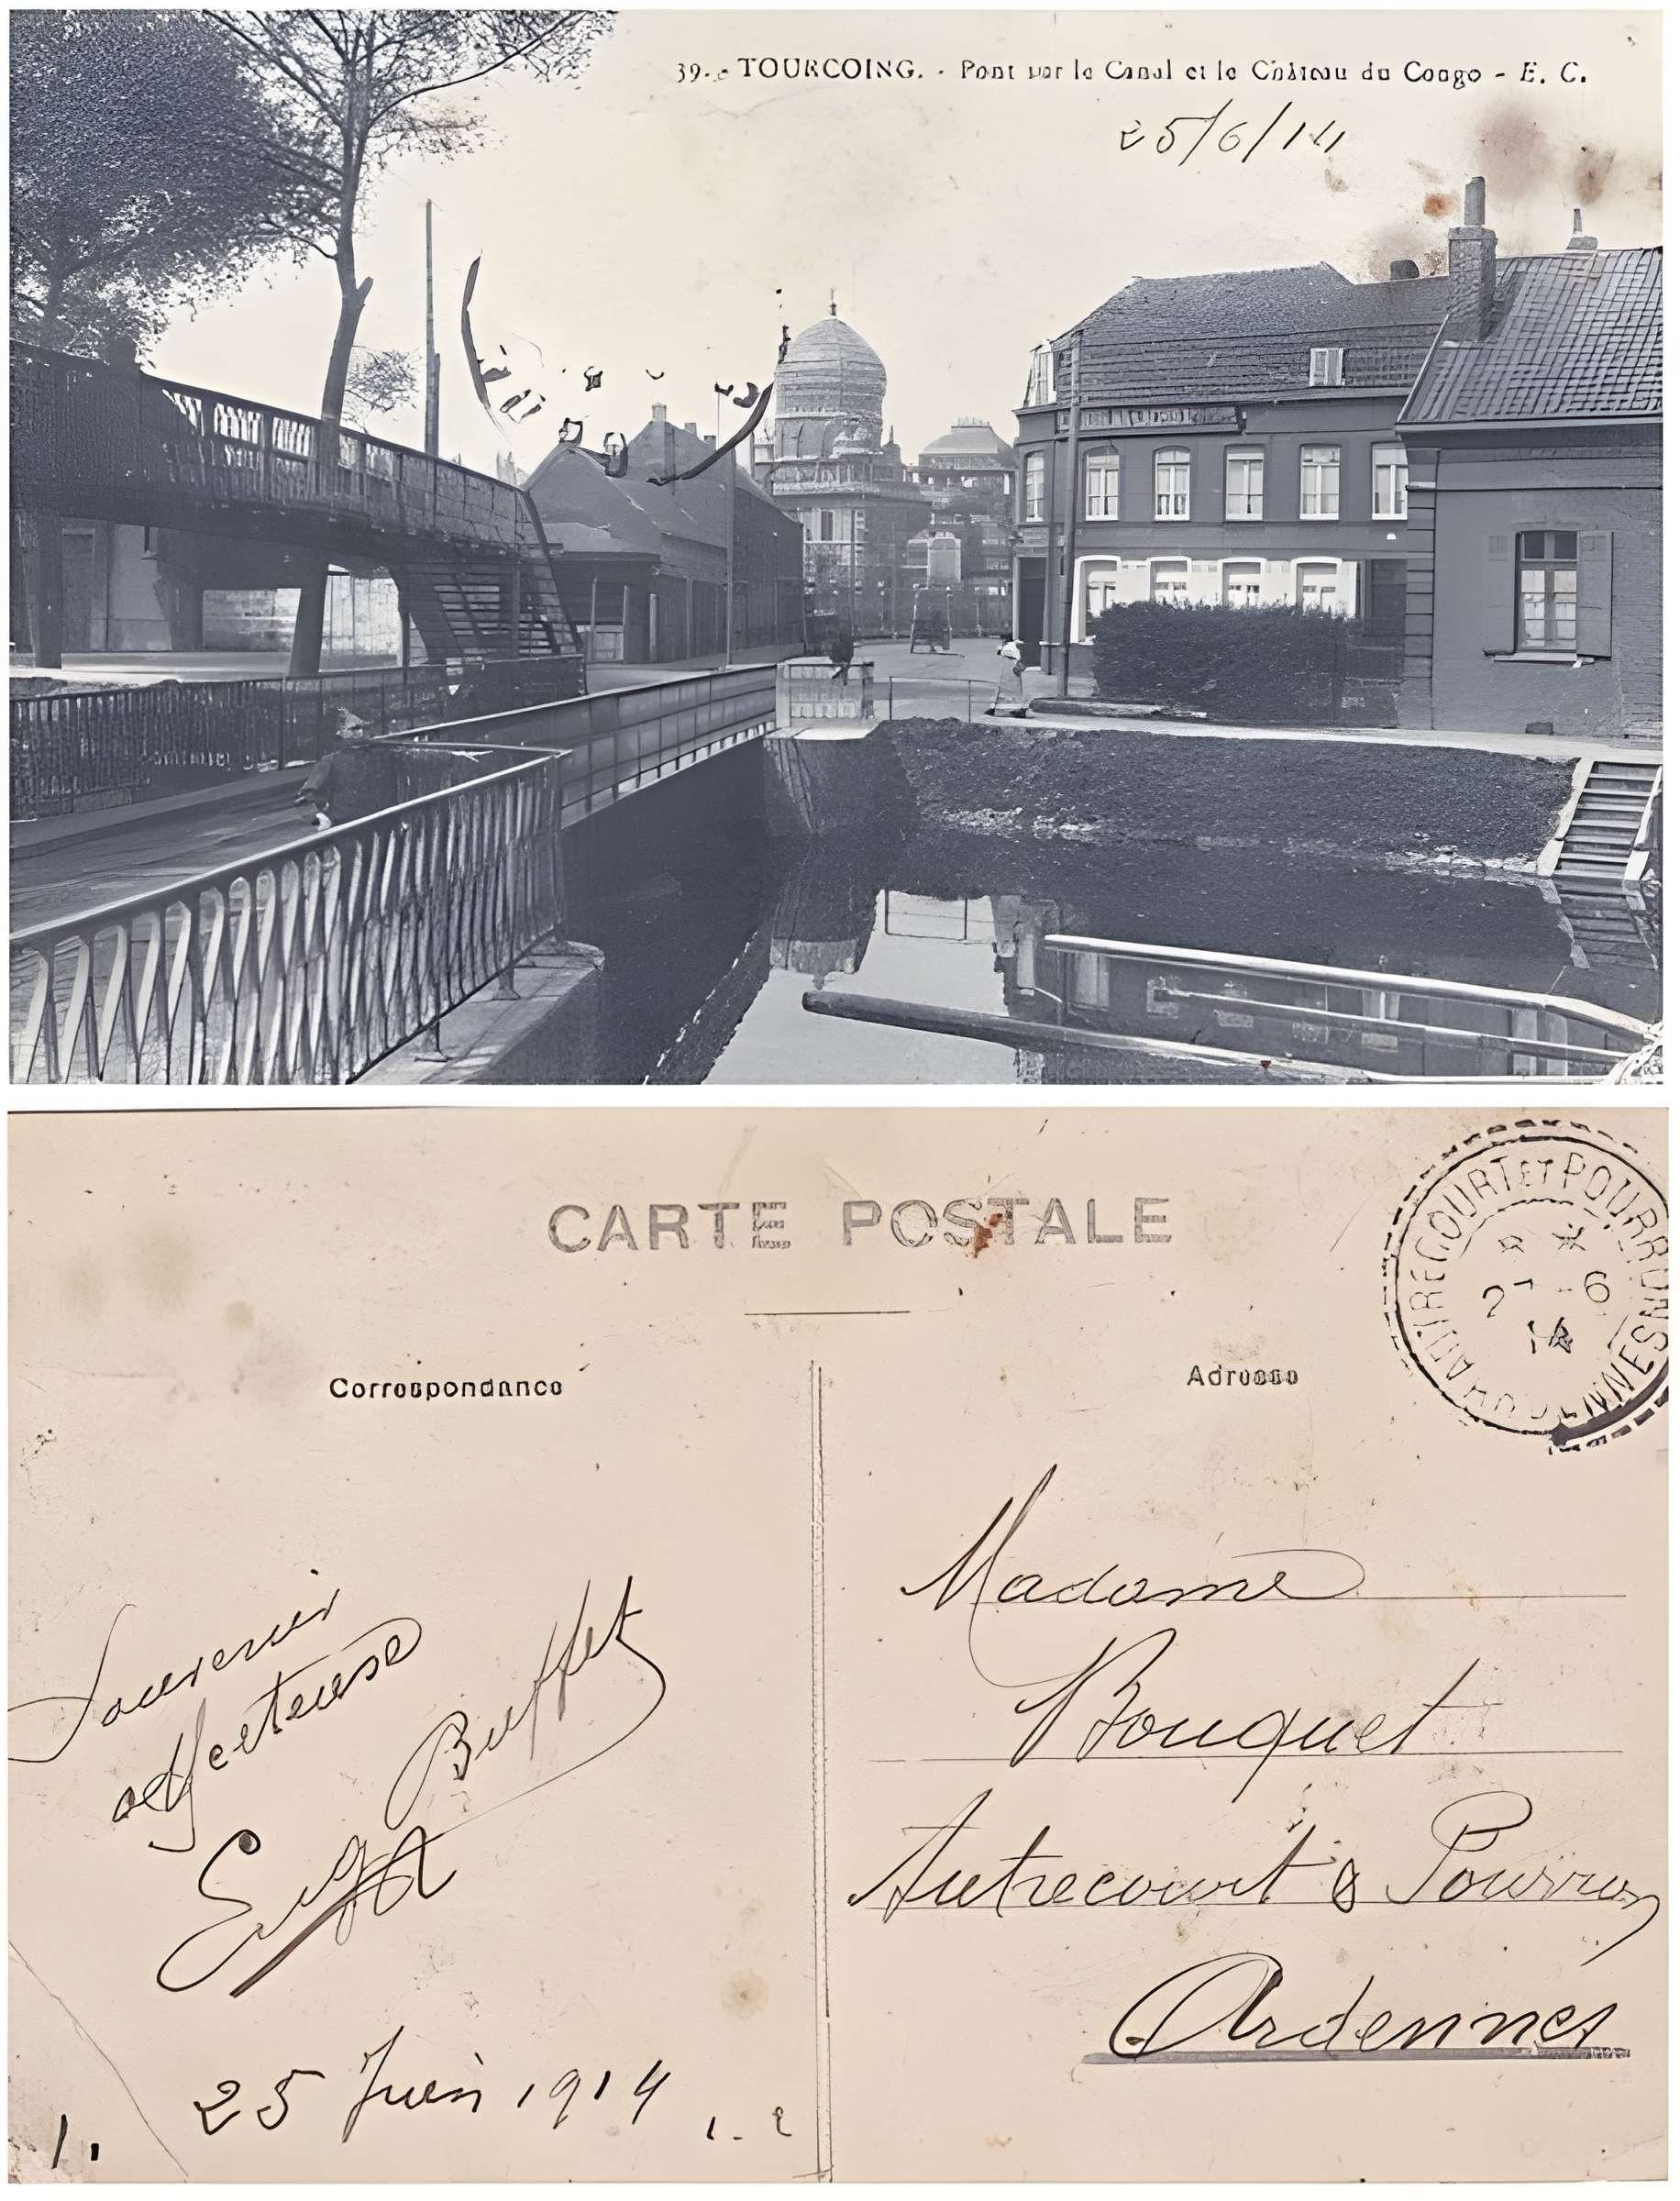 39. - TOURCOING. - Pont sur le Canal et le Château du Congo - E. C.
25/6/14
CARTE POSTALE
AUTRECOURT ET POURRON
ARDENNES
6
14
Correspondance
Adresse
Souvenir
affectueuse
Buffet
25 Juin 1914
Madame
Bouquet
Autrecourt & Pourron
Ardennes